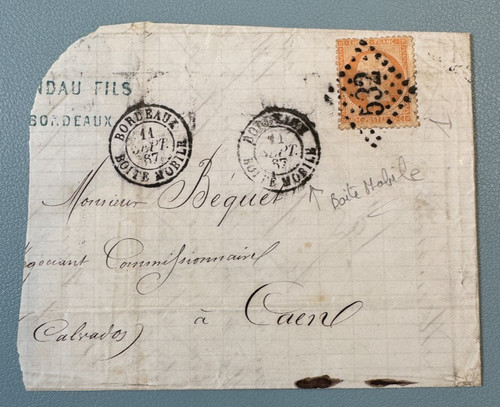 NDAU FILS
BORDEAUX
BORDEAUX
11
SEPT.
67
BOITE MOBILE
BORDEAUX
11
SEPT.
67
BOITE MOBILE
532
Boite Mobile
Monsieur Béquet
gociant Commissionnaire
à Caen
Calvados)